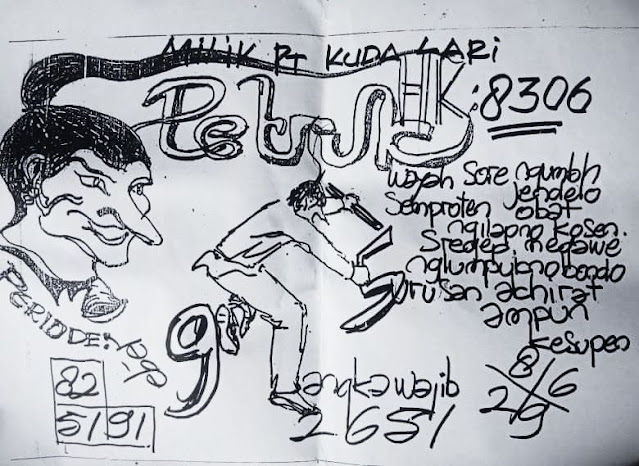 MILIK PT KUDA LARI
Petruk
HK: 8306
Wayah Sore ngumbah
jendelo
Semproten obat
ngilapno kosen.
Sregep megawe
nglumpujono bondo
Urusan achirat
ampun
kesupen
PERIODE:
9
82
51 91
angka wajib
2651
8
6
2 9